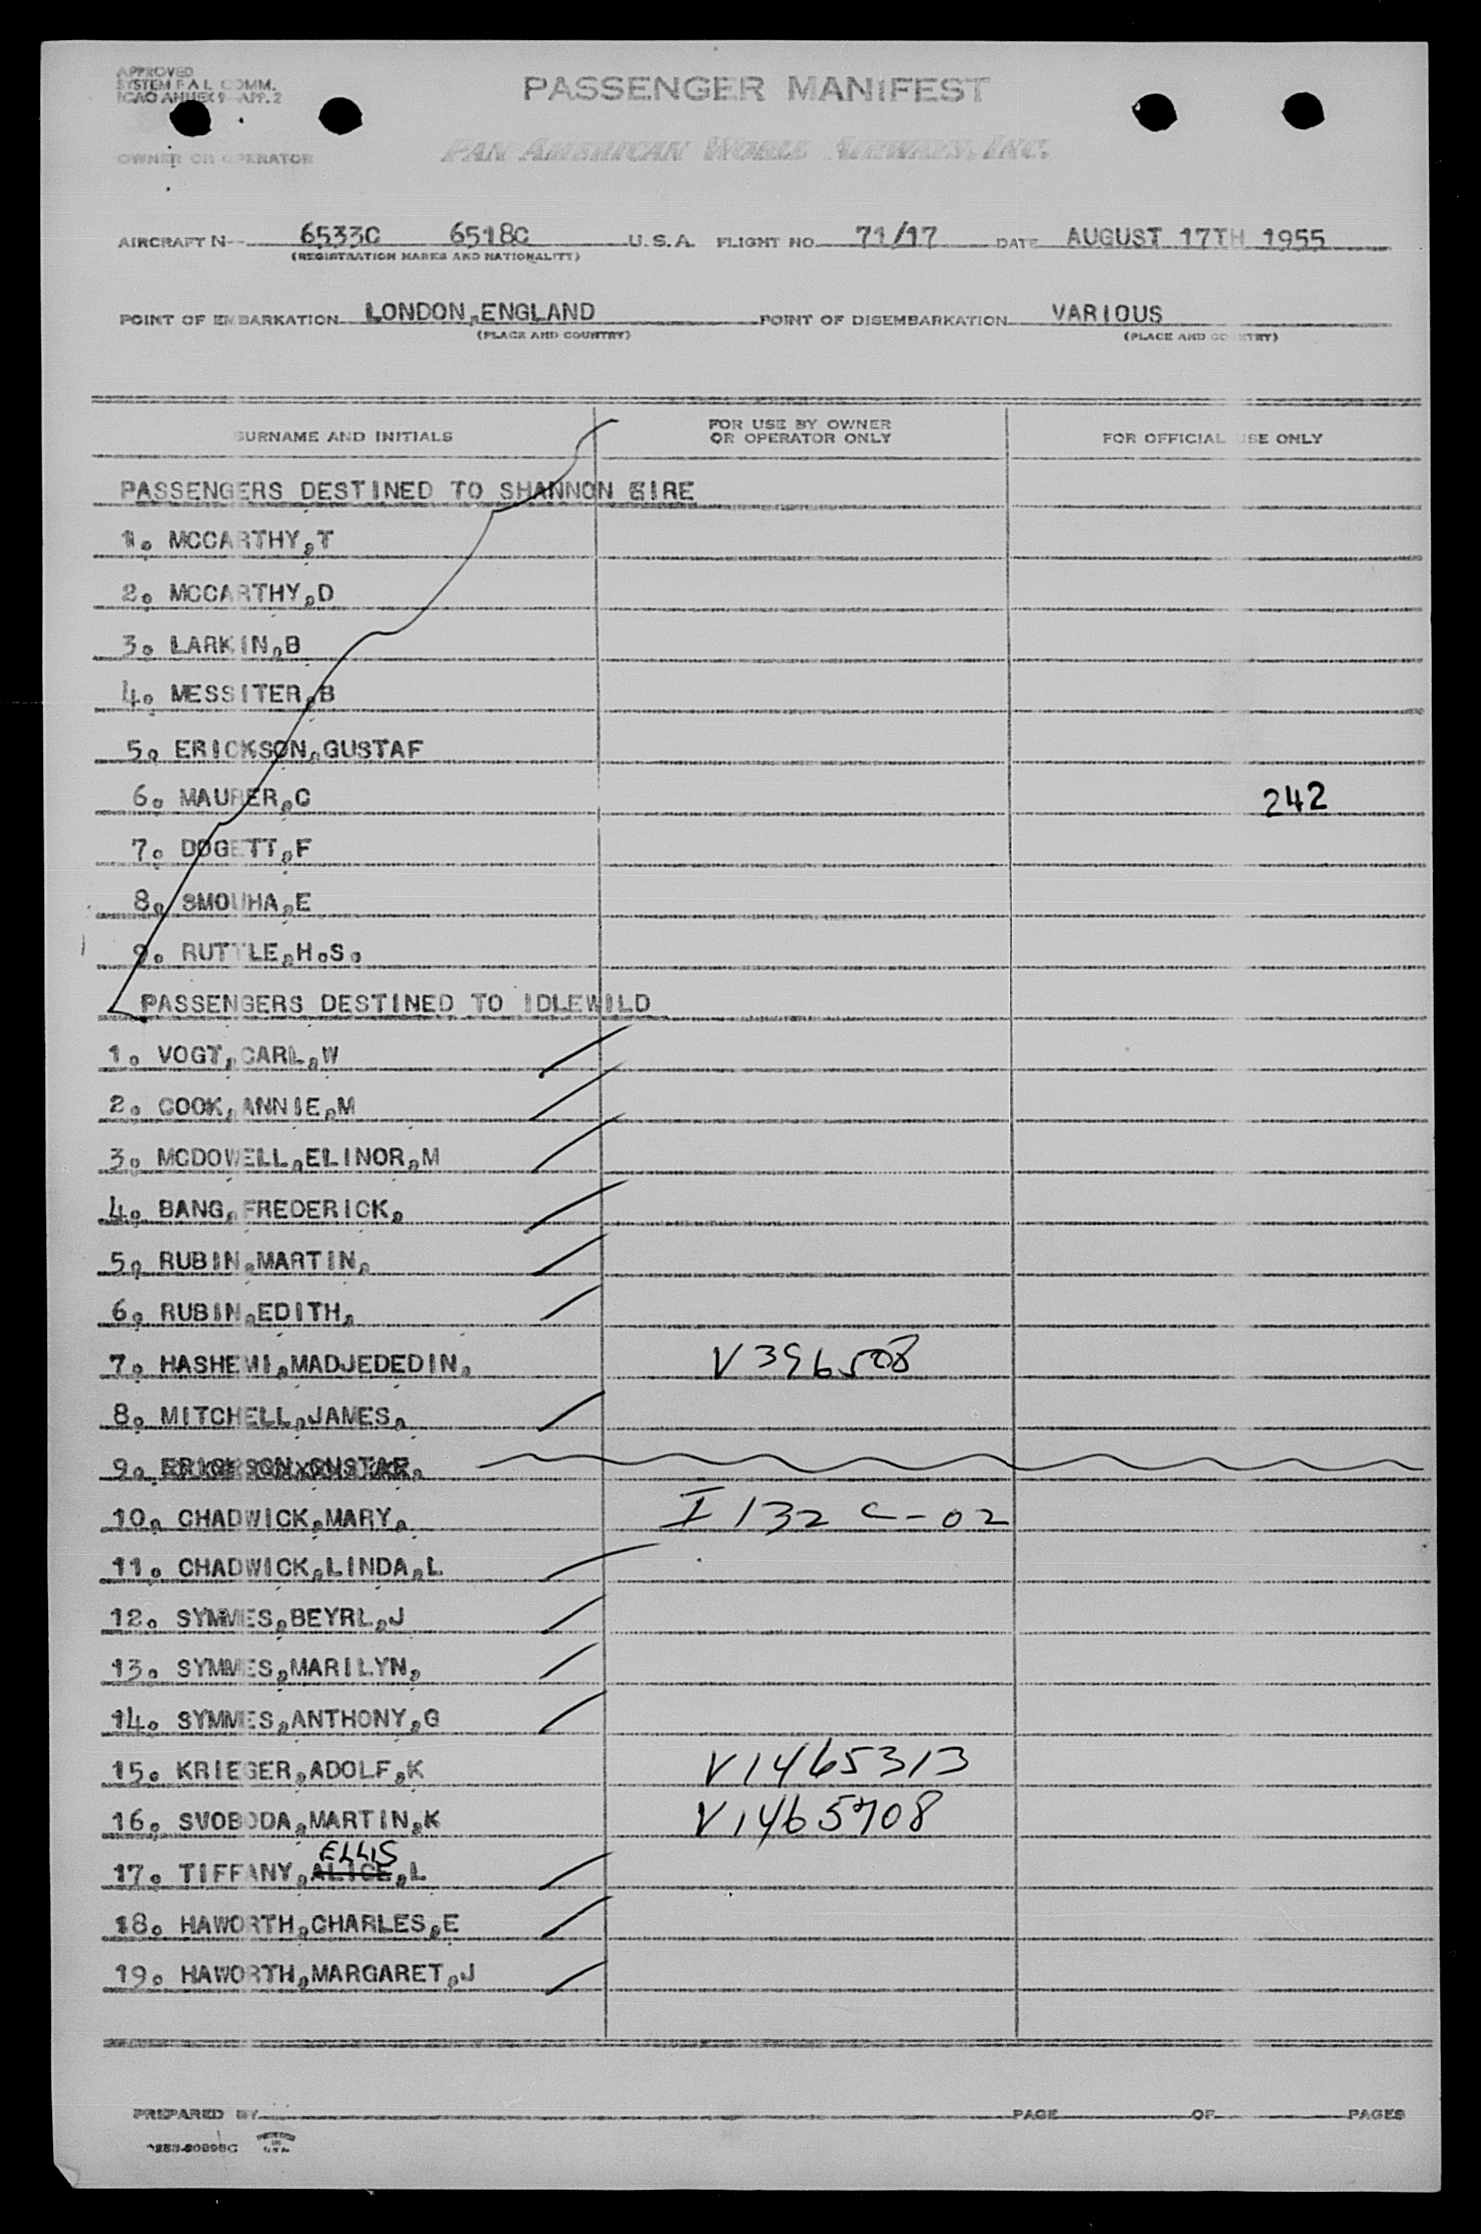 APPROVED
SYSTEM F A L COMM.
ICAO ANNEX 9—APP. 2
PASSENGER MANIFEST
OWNER OR OPERATOR PAN AMERICAN WORLD AIRWAYS, INC.
AIRCRAFT N-- 6533C 6518C U. S. A. FLIGHT NO. 71/17 DATE AUGUST 17TH 1955
(REGISTRATION MARKS AND NATIONALITY)
POINT OF EMBARKATION LONDON,ENGLAND POINT OF DISEMBARKATION VARIOUS
(PLACE AND COUNTRY) (PLACE AND COUNTRY)
SURNAME AND INITIALS FOR USE BY OWNER OR OPERATOR ONLY FOR OFFICIAL USE ONLY
PASSENGERS DESTINED TO SHANNON EIRE
1. MCCARTHY,T
2. MCCARTHY,D
3. LARKIN,B
4. MESSITER,B
5. ERICKSON,GUSTAF
6. MAURER,C 242
7. DOGETT,F
8. SMOUHA,E
9. RUTTLE,H.S.
PASSENGERS DESTINED TO IDLEWILD
1. VOGT,CARL,W
2. COOK,ANNIE,M
3. MCDOWELL,ELINOR,M
4. BANG,FREDERICK,
5. RUBIN,MARTIN,
6. RUBIN,EDITH,
7. HASHEMI,MADJEDEDIN, V396508
8. MITCHELL,JAMES,
9. ERICKSON,GUSTAF,
10. CHADWICK,MARY, I 132 C-02
11. CHADWICK,LINDA,L
12. SYMMES,BEYRL,J
13. SYMMES,MARILYN,
14. SYMMES,ANTHONY,G
15. KRIEGER,ADOLF,K V1465313
16. SVOBODA,MARTIN,K V1465708
ELLIS
17. TIFFANY,ALICE,L
18. HAWORTH,CHARLES,E
19. HAWORTH,MARGARET,J
PREPARED BY PAGE OF PAGES